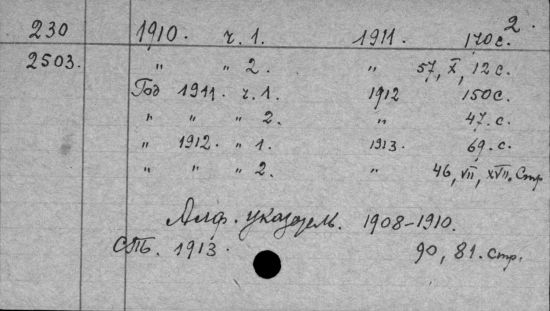 2.
230 1910. ч. 1. 1911. 170 с.
2503. " " 2. " 57, X, 12 с.
Год 1911. ч. 1. 1912 150 с.
" " " 2. " 47. с.
" 1912. " 1. 1913. 69. с.
" " " 2. " 46, VII, XVII. Стр
Алф. указатель. 1908-1910.
СПБ. 1913. 90, 81. стр.